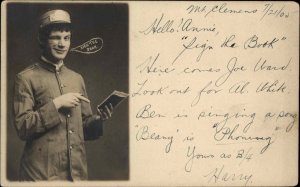 Mt. Clemens 7/20/06
Hello! Annie,
"Sign the Book"
Here comes Joe Ward.
Look out for W. White
Ben is singing a song
"Beany" is "Phoning"
Yours as B/4
Harry